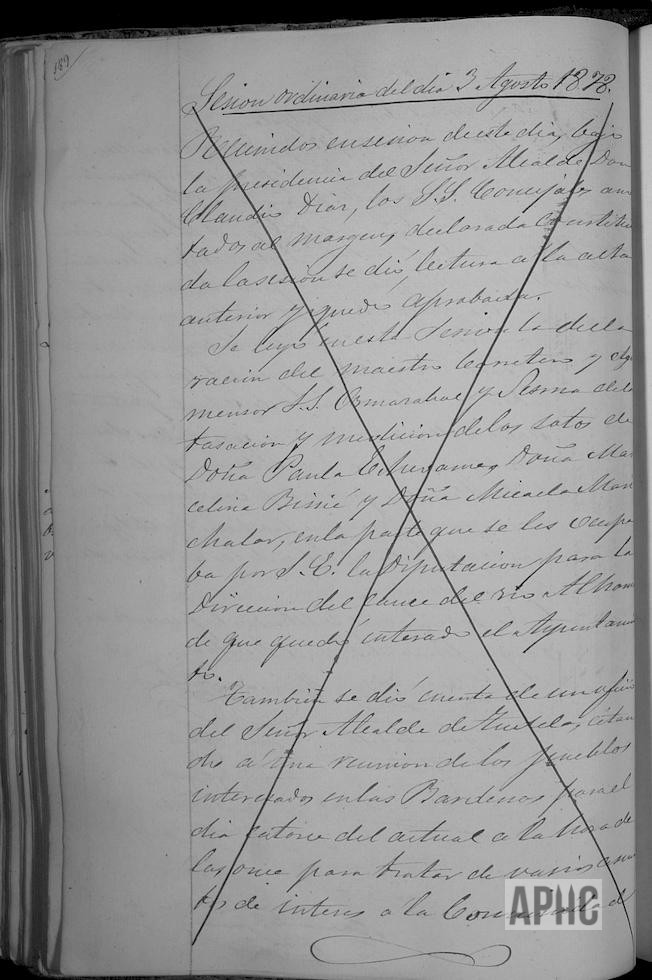 189
Sesion ordinaria del dia 3 Agosto 1878.
Reunidos en sesion de este dia, bajo
la presidencia del Señor Alcalde Don
Claudio Diar, los S.S. Concejales ano
tados al margen, declarada constitui
da la sesion se dió lectura a la acta
anterior y quedó aprobada.
Se leyó en esta Sesion la decla
racion del maestro Carretero y Agri
mensor S.S. y Sesma del
tasacion y medicion de los sotos de
Doña Paula Doña Mar
celina Bissié y Doña Micaela Mari
chalar, en la parte que se les ocupa
ba por S.E. la Diputacion para la
Direccion del cauce del rio Alhama
de que quedó enterado el Ayuntamien
to.
Tambien se dió cuenta de un oficio
del Señor Alcalde de Tudela, citan
do a una reunion de los pueblos
interesados en las Bardenas para el
dia catorce del actual a la hora de
las once para tratar de varios asun
tos de interes a la Comunidad
APHC